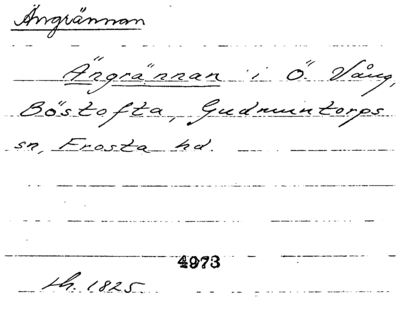 Ängrännan
Ängrännan i Ö. Vång,
Böstofta, Gudmuntorps
sn, Frosta hd.
4973
sk. 1825